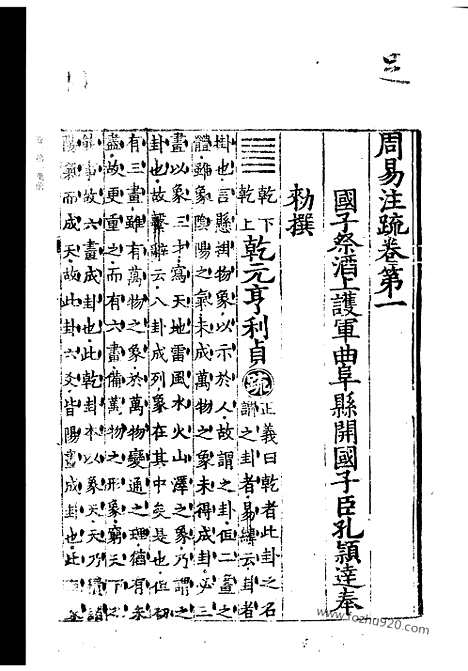 周易注疏卷第一
國子祭酒上護軍曲阜縣開國子臣孔穎達奉
勑撰
乾下
乾上
乾元亨利貞
疏
正義曰乾者此卦之名
謂之卦者易緯云卦者
掛也言縣掛物象以示於人故謂之卦但二畫之
體雖象陰陽之氣未成萬物之象未得成卦必三
畫以象三才寫天地雷風水火山澤之象乃謂之
卦也故繫辭云八卦成列象在其中矣是也但初
有三畫雖有萬物之象於萬物變通之理猶有未
盡故更重之而有六畫備萬物之形象窮天下之
能事故六畫成卦也此乾卦本以象天天乃積諸
陽氣而成天故此卦六爻皆陽畫成卦也此
www.fozhu920.com